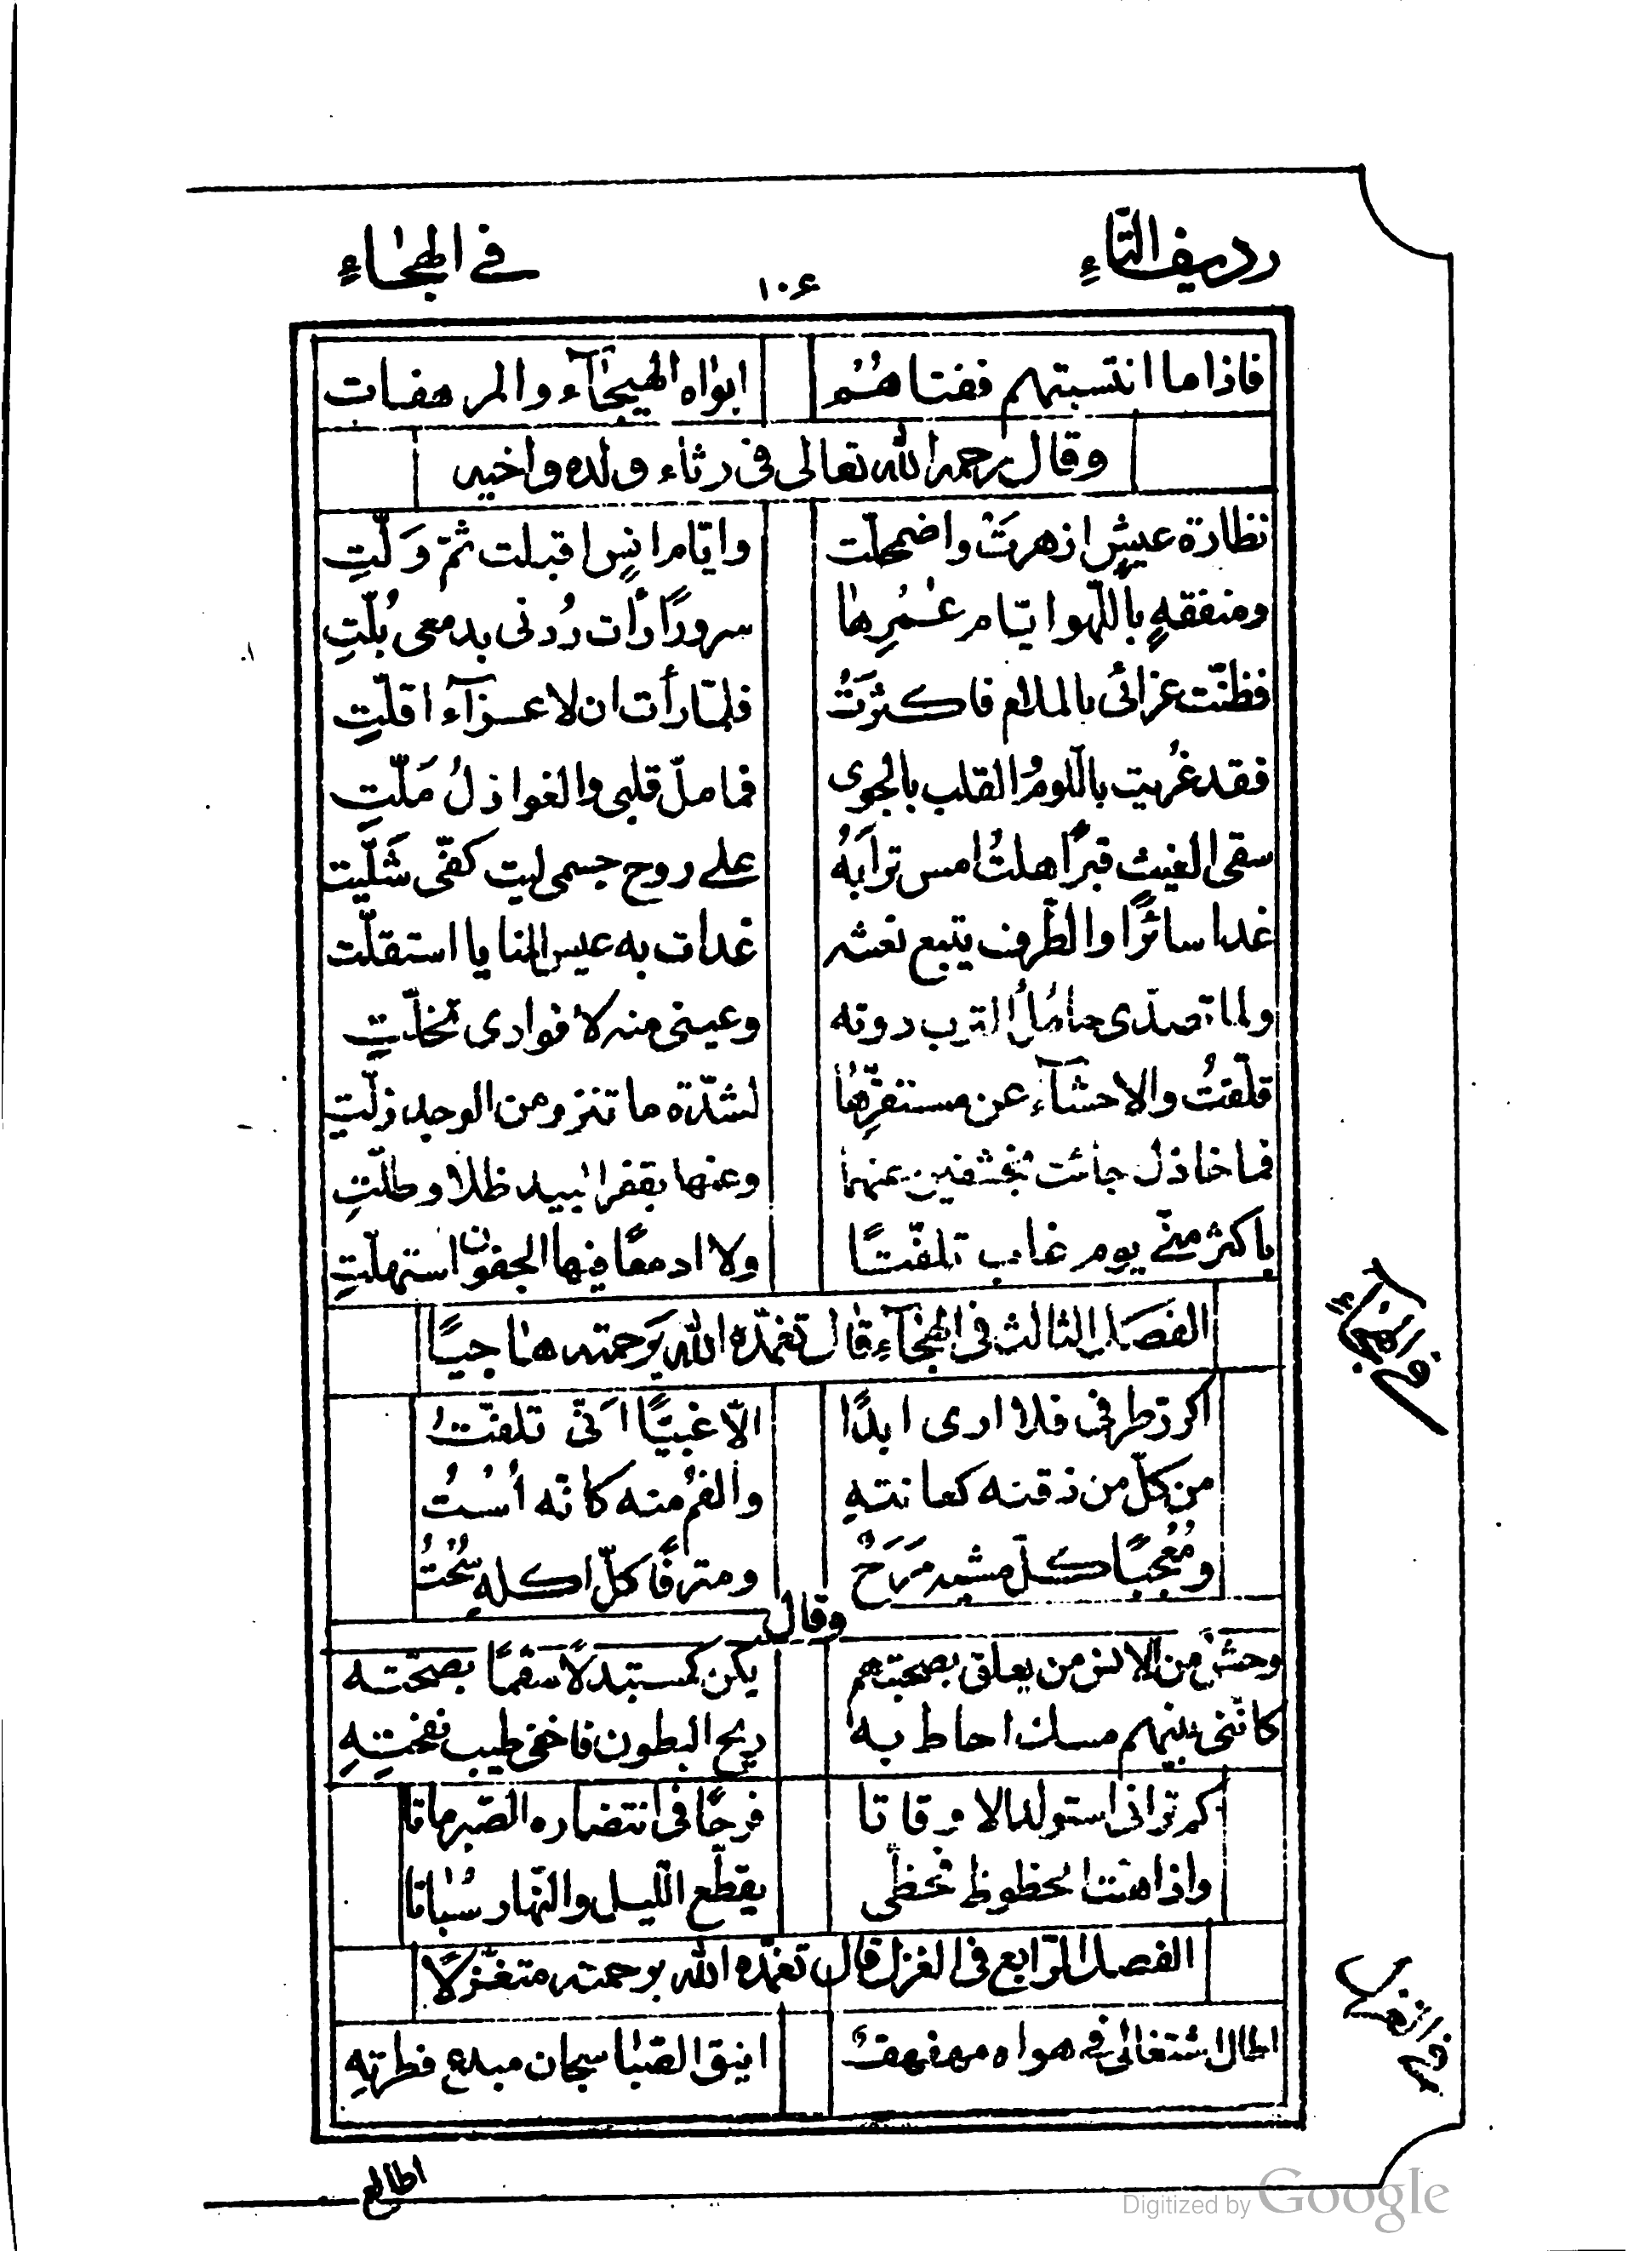 رديف التّاءِ
١٠۶
في الهجٰاءِ
فاذا ما انتسبتهم ففتاهُمُ ابوٰاه الهيجٰآء والمرهفات
وقال رحمه الله تعالى فى رثٰاء ولده واخيه
نظارة عيشٍ ازهرتْ واضمحلّت وايّام انسٍ اقبلت ثمّ وَلّتِ
ومنفقهٍ باللّهو ايّام عُمُرِهٰا سرورًا رأت رُدنى بدمعى بُلّتِ
فظنّت عزائى بالملام فاكثرَتْ فلمّا رأت ان لا عزآء اقلّتِ
فقد غُريت باللّوم والقلب بالجوى فما ملّ قلبى والعواذلُ مَلّتِ
سقى الغيث قبرًا هلتُ امس ترابَهُ على روح جسمى ليت كفّى شَلّيت
غدا سائرًا والطّرف يتبع نعشه غدات به عيس المنايا استقلّت
ولما تصدّى حامُل الترب دونه وعينى منه لا فوادى تخلّتِ
قلّفتُ والاحشآء عن مستفرِّهٰا لشدّة ما تنزو من الوجد زلّتِ
فما خاذل جائت بخشفين عنهما وعنها بقفر البيد ظلا وطلّتِ
باكثر منّي يوم غاب تلفّتًا ولا ادمعًا فيها الجفون استهلّتِ
الفصل الثالث فى الهجٰآءِ قٰال تغمّده الله برحمته هٰاجيًا
اكرّ طرفى فلا ارى ابدًا الّا غبيًّا انّى تلفّتُ
من كلّ من ذقنه كعانتهِ والفمُ منه كانّه اُسْتُ
ومُعجبًا كلّ مشيه مَرَحُ ومترفًا كلّ اكله سُحْتُ
وقال
وحشٌ من الانس من يعلق بصحبتهم يكن كمستبدلًا سقمًا بصحّته
كانّنى بينهم مسك احاط به ريح البطون فاخفى طيب نفحتِهِ
كم ترانى استولد الاوقاتا فرجًا فى انتضاره الصّبر ماتا
واذا هنت لحظوظ فحظّى يقطّع اللّيل والنّهار سُبٰاتا
الفصل الرّابع فى الغزل قال تغمّده الله برحمته متغزّلًا
اطال اشتغالى في هواه مهفهفٌ انيق الصّبٰا سبحان مبدع فطرتهِ
في الهجٰاءِ
في الغزل
اطالع
Digitized by Google